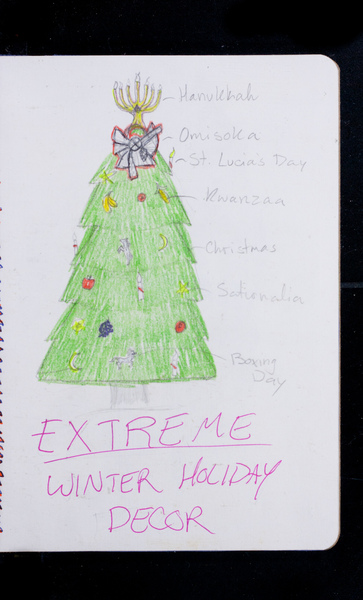 Hanukkah
Omisoka
St. Lucia's Day
Kwanzaa
Christmas
Saturnalia
Boxing
Day
EXTREME
WINTER HOLIDAY
DECOR